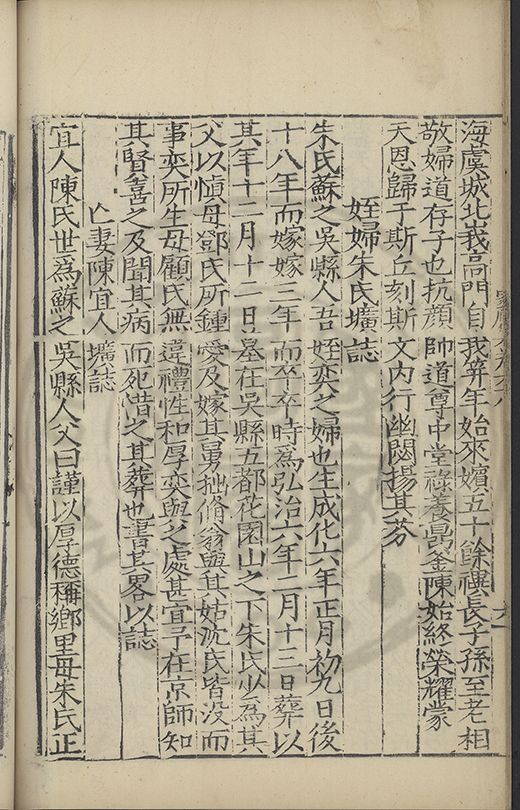 海虞城北峩高門自我笄年始來嬪五十餘禩長子孫至老相
敬婦道存子也抗顏帥道尊中堂祿養鼎釜陳始終榮耀蒙
天恩歸于斯丘刻斯文内行幽閟揚其芬
姪婦朱氏壙誌
朱氏蘇之吳縣人吾姪奕之婦也生成化六年正月初九日後
十八年而嫁嫁三年而卒卒時為弘治六年二月十三日葬以
其年十二月十二日墓在吳縣五都花園山之下朱氏少為其
父以愼母鄧氏所鍾愛及嫁其舅拙脩翁與其姑沈氏皆没而
事奕所生母顧氏無違禮性和厚奕與之處甚宜予在京師知
其賢喜之及聞其病而死惜之其葬也書其畧以誌
亡妻陳宜人壙誌
宜人陳氏世為蘇之吳縣人父曰謹以厚德稱鄉里母朱氏正